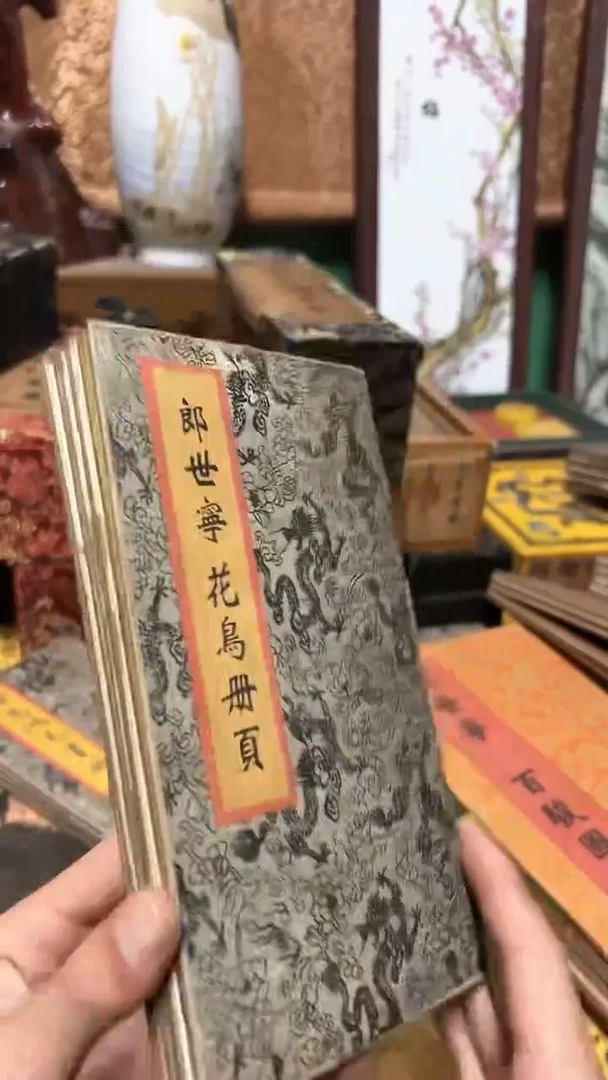 郎世寧花鳥冊頁
百駿圖